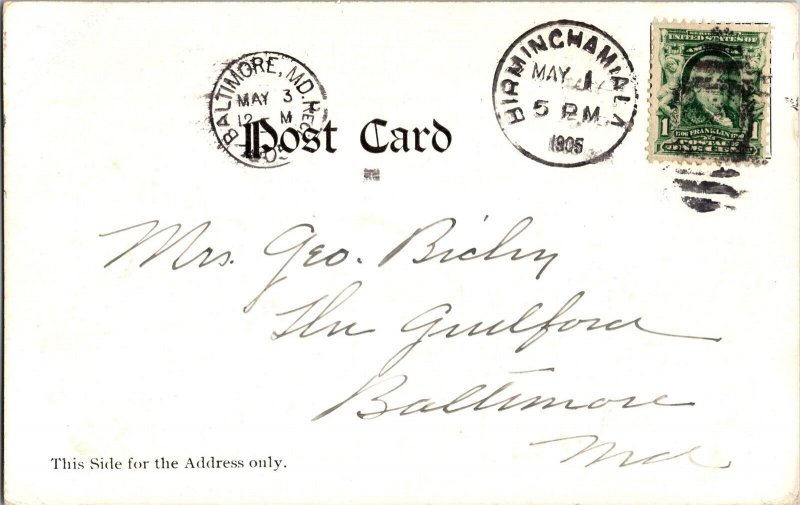 BALTIMORE, MD. REC'D
MAY 3
12 M
BIRMINGHAM, ALA.
MAY 1
5 PM
1905
SERIES 1902
UNITED STATES OF
AMERICA
1 FRANKLIN 1
POSTAGE
ONE CENT
Post Card
Mrs. Geo. Bichy
The Guilford
Baltimore
Md.
This Side for the Address only.